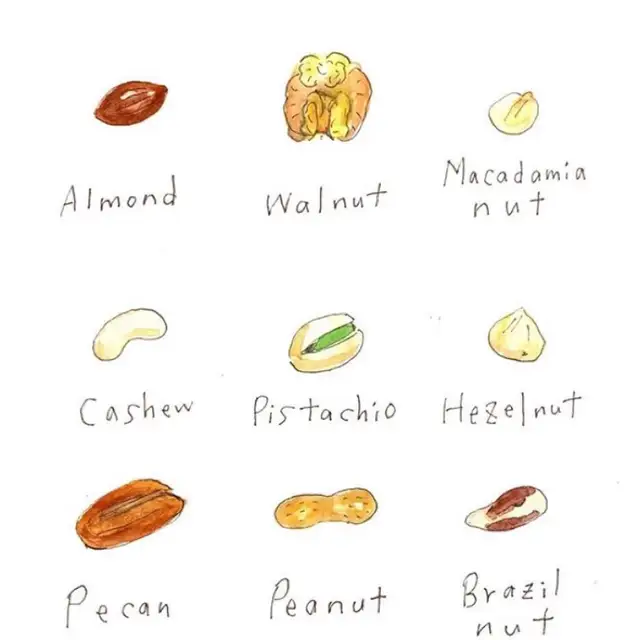 Almond
Walnut
Macadamia
nut
Cashew
Pistachio
Hezelnut
Pecan
Peanut
Brazil
nut